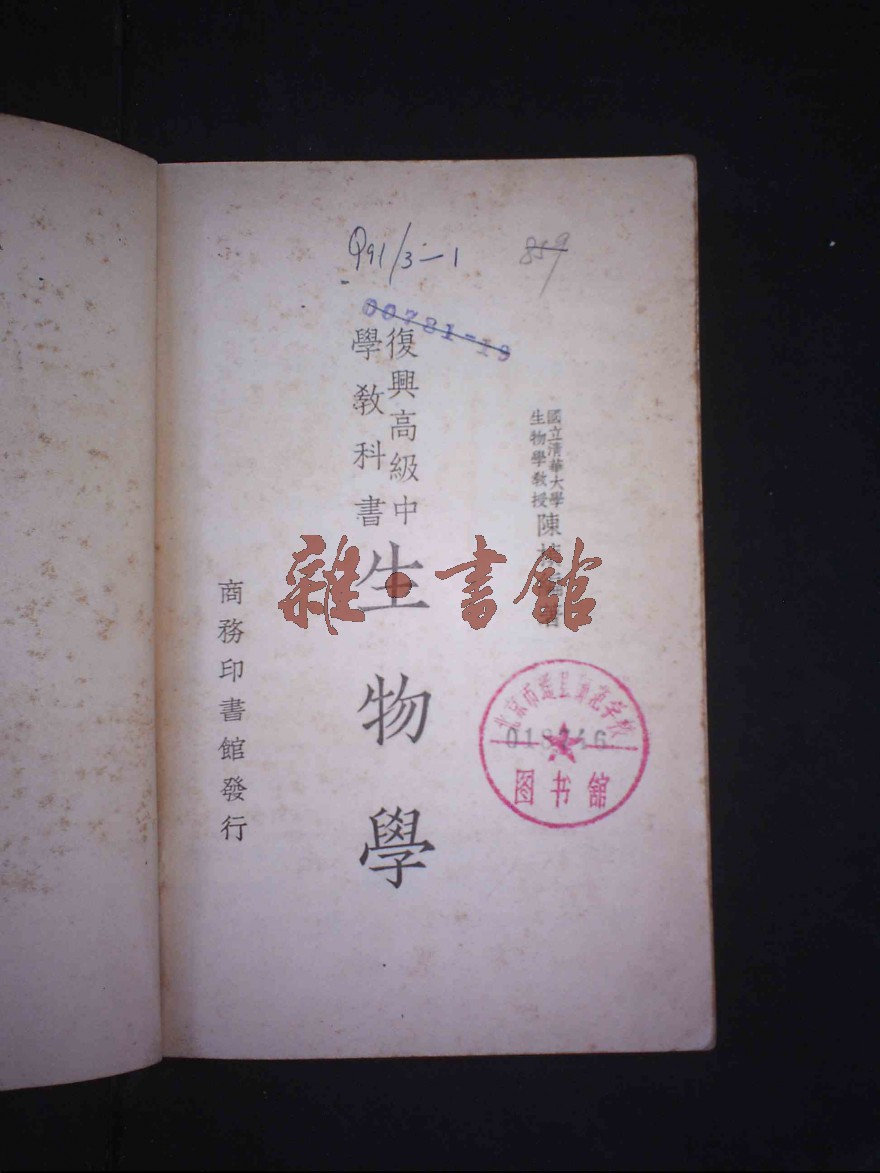 Q91/3-1
859
00781-19
國立清華大學
生物學教授
陳
著
復興高級中
學教科書
生物學
商務印書館發行
雜·書館
北京市通县师范学校
图书館